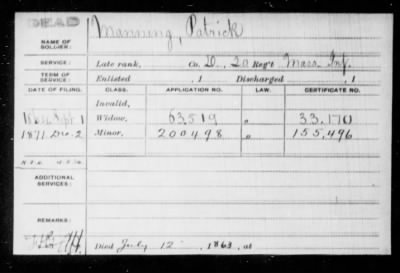 DEAD
NAME OF SOLDIER: Manning, Patrick
SERVICE: Late rank, Co. D, 20 Reg't Mass. Inf.
TERM OF SERVICE: Enlisted , 1 Discharged , 1
DATE OF FILING. CLASS. APPLICATION NO. LAW. CERTIFICATE NO.
Invalid,
1864 Sept 1 Widow, 63,519 " 33,170
1871 Dec. 2 Minor, 200498 " 155,496
ADDITIONAL SERVICES:
REMARKS:
Died July 12 , 1863, at